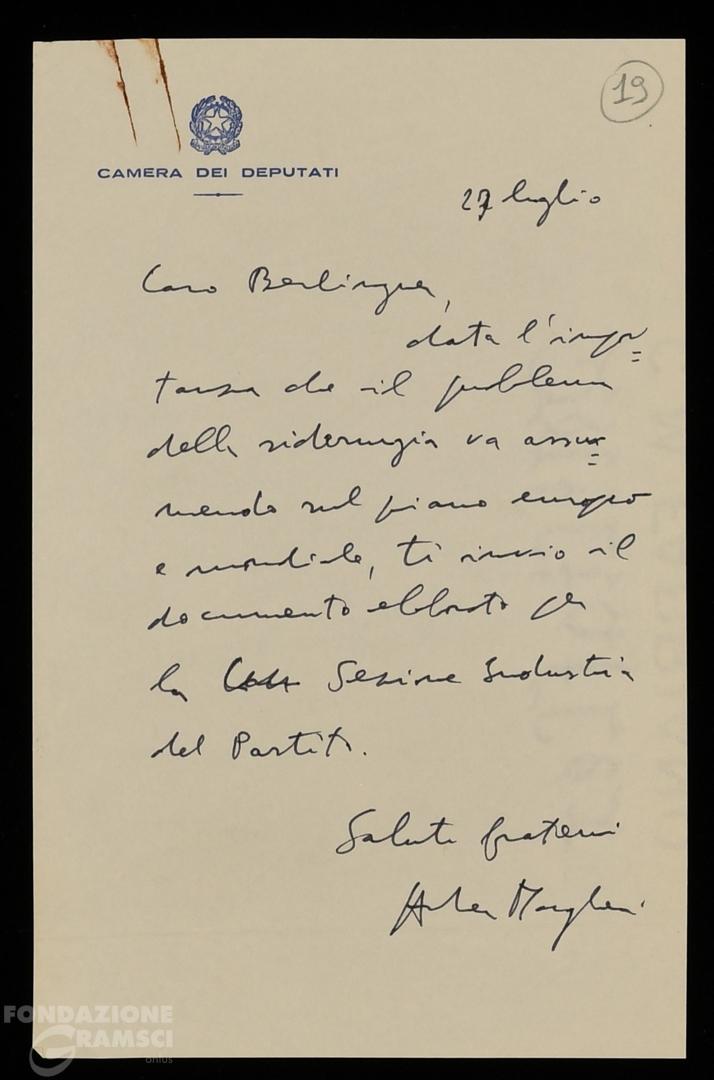 19
CAMERA DEI DEPUTATI
27 luglio
Caro Berlinguer,
data l'impor=
tanza che il problema
della siderurgia va assu=
mendo sul piano europeo
e mondiale, ti invio il
documento elaborato per
la Sezione Industria
del Partito.
Saluti fraterni
Margheri
FONDAZIONE
GRAMSCI
onlus